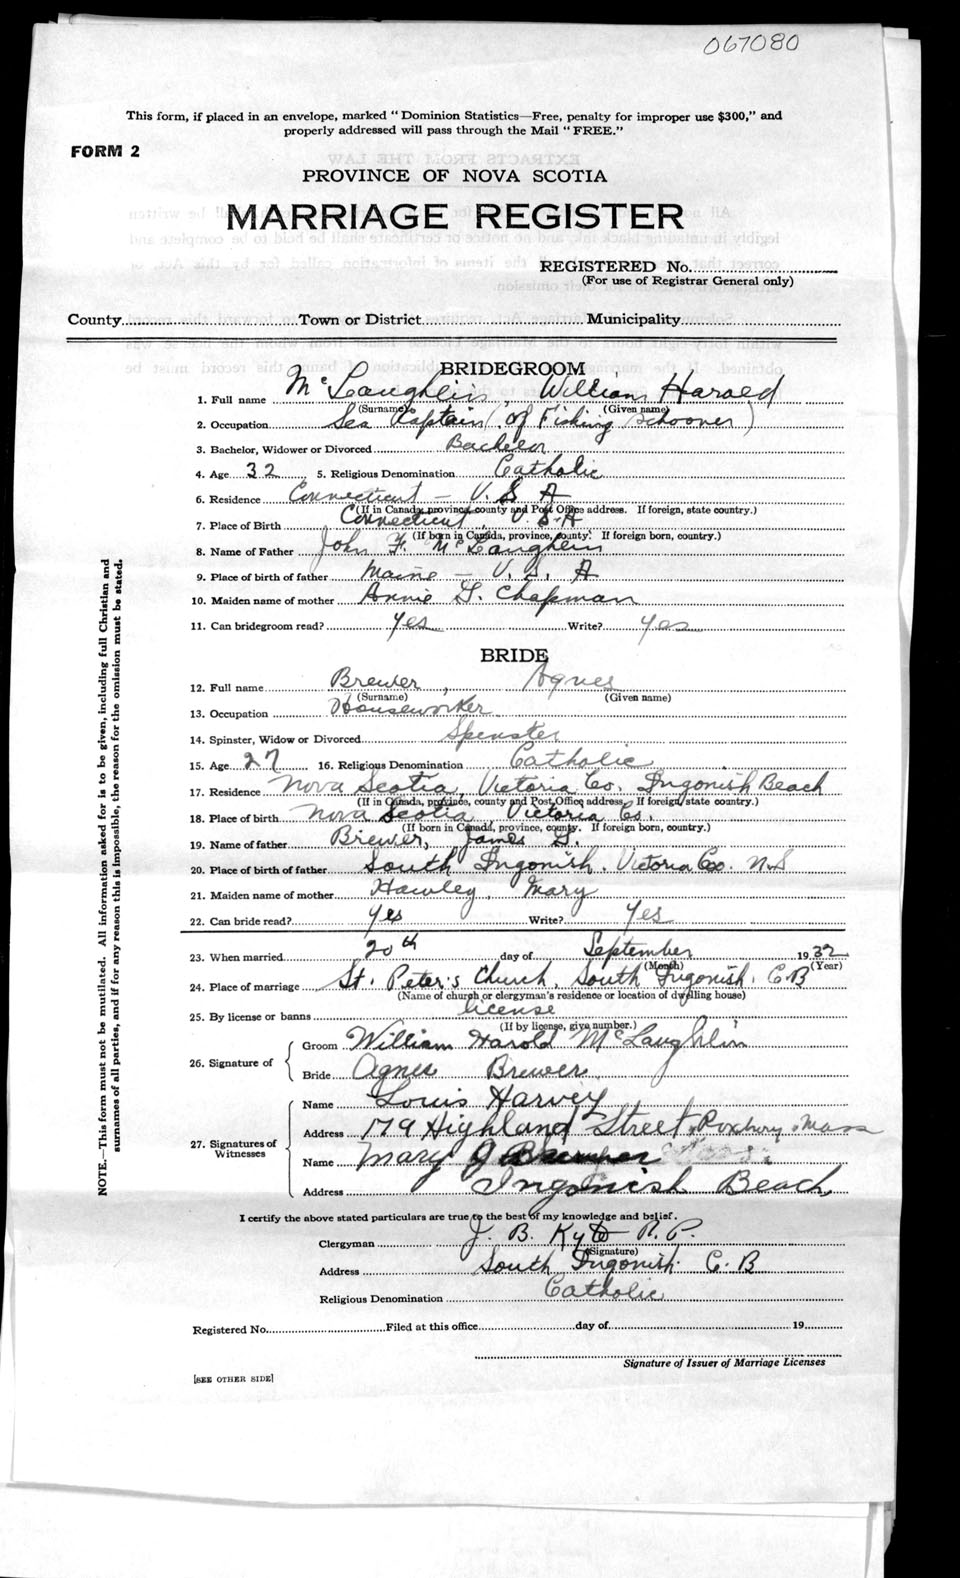 067080
This form, if placed in an envelope, marked "Dominion Statistics—Free, penalty for improper use $300," and
properly addressed will pass through the Mail "FREE."
FORM 2
PROVINCE OF NOVA SCOTIA
MARRIAGE REGISTER
REGISTERED No.
(For use of Registrar General only)
County Town or District Municipality
BRIDEGROOM
1. Full name McLaughlin, William Harold
(Surname) (Given name)
2. Occupation Sea Captain (of Fishing Schooner)
3. Bachelor, Widower or Divorced Bachelor
4. Age 32 5. Religious Denomination Catholic
6. Residence Connecticut - U. S. A
(If in Canada, province, county and Post Office address. If foreign, state country.)
7. Place of Birth Connecticut, U. S. A
(If born in Canada, province, county. If foreign born, country.)
8. Name of Father John F. McLaughlin
9. Place of birth of father Maine - U. S. A
10. Maiden name of mother Annie G. Chapman
11. Can bridegroom read? Yes Write? Yes
BRIDE
12. Full name Brewer, Agnes
(Surname) (Given name)
13. Occupation Houseworker
14. Spinster, Widow or Divorced Spenster
15. Age 27 16. Religious Denomination Catholic
17. Residence Nova Scotia, Victoria Co. Ingonish Beach
(If in Canada, province, county and Post Office address, If foreign, state country.)
18. Place of birth Nova Scotia Victoria Co.
(If born in Canada, province, county. If foreign born, country.)
19. Name of father Brewer, James
20. Place of birth of father South Ingonish, Victoria Co. N.S
21. Maiden name of mother Hawley, Mary
22. Can bride read? Yes Write? Yes
23. When married 20th day of September 1932
(Month) (Year)
24. Place of marriage St. Peter's Church, South Ingonish. C.B
(Name of church or clergyman's residence or location of dwelling house)
25. By license or banns license
(If by license, give number.)
26. Signature of Groom William Harold McLaughlin
Bride Agnes Brewer
27. Signatures of Witnesses Name Louis Harvey
Address 179 Highland Street, Roxbury. Mass
Name Mary J
Address Ingonish Beach
I certify the above stated particulars are true to the best of my knowledge and belief.
Clergyman J. B. Kyte P. P.
(Signature)
Address South Ingonish. C. B
Religious Denomination Catholic
Registered No. Filed at this office day of 19
Signature of Issuer of Marriage Licenses
[SEE OTHER SIDE]
NOTE.—This form must not be mutilated. All information asked for is to be given, including full Christian and
surnames of all parties, and if for any reason this is impossible, the reason for the omission must be stated.